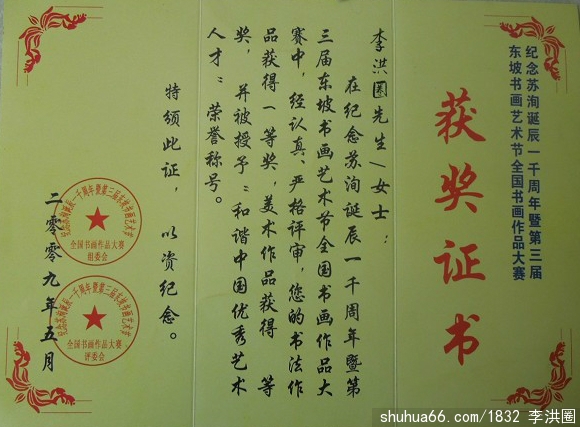 纪念苏洵诞辰一千周年暨第三届
东坡书画艺术节全国书画作品大赛
获奖证书
李洪圈先生/女士：
在纪念苏洵诞辰一千周年暨第
三届东坡书画艺术节全国书画作品大
赛中，经认真、严格评审，您的书法作
品获得一等奖，美术作品获得 等
奖，并被授予“和谐中国优秀艺术
人才”荣誉称号。
特颁此证，以资纪念。
纪念苏洵诞辰一千周年暨第三届东坡书画艺术节
全国书画作品大赛
组委会
纪念苏洵诞辰一千周年暨第三届东坡书画艺术节
全国书画作品大赛
评委会
二零零九年五月
shuhua66.com/1832 李洪圈